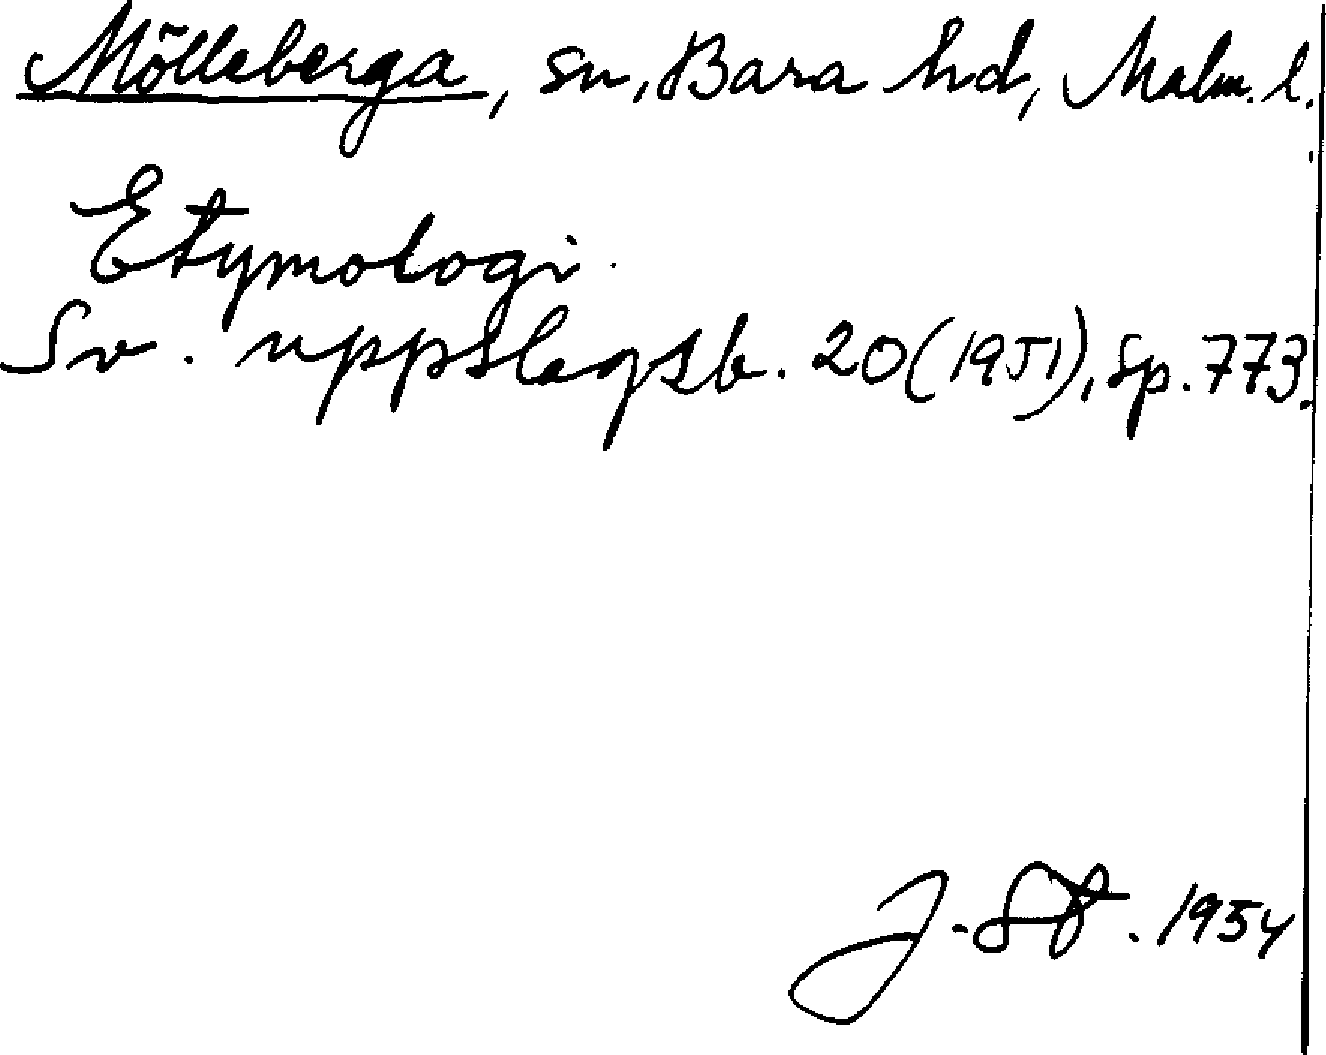 Mölleberga, sn, Bara hd, Malm. l.
Etymologi.
Sv. uppslagsb. 20 (1951), sp. 773.
J. St. 1954